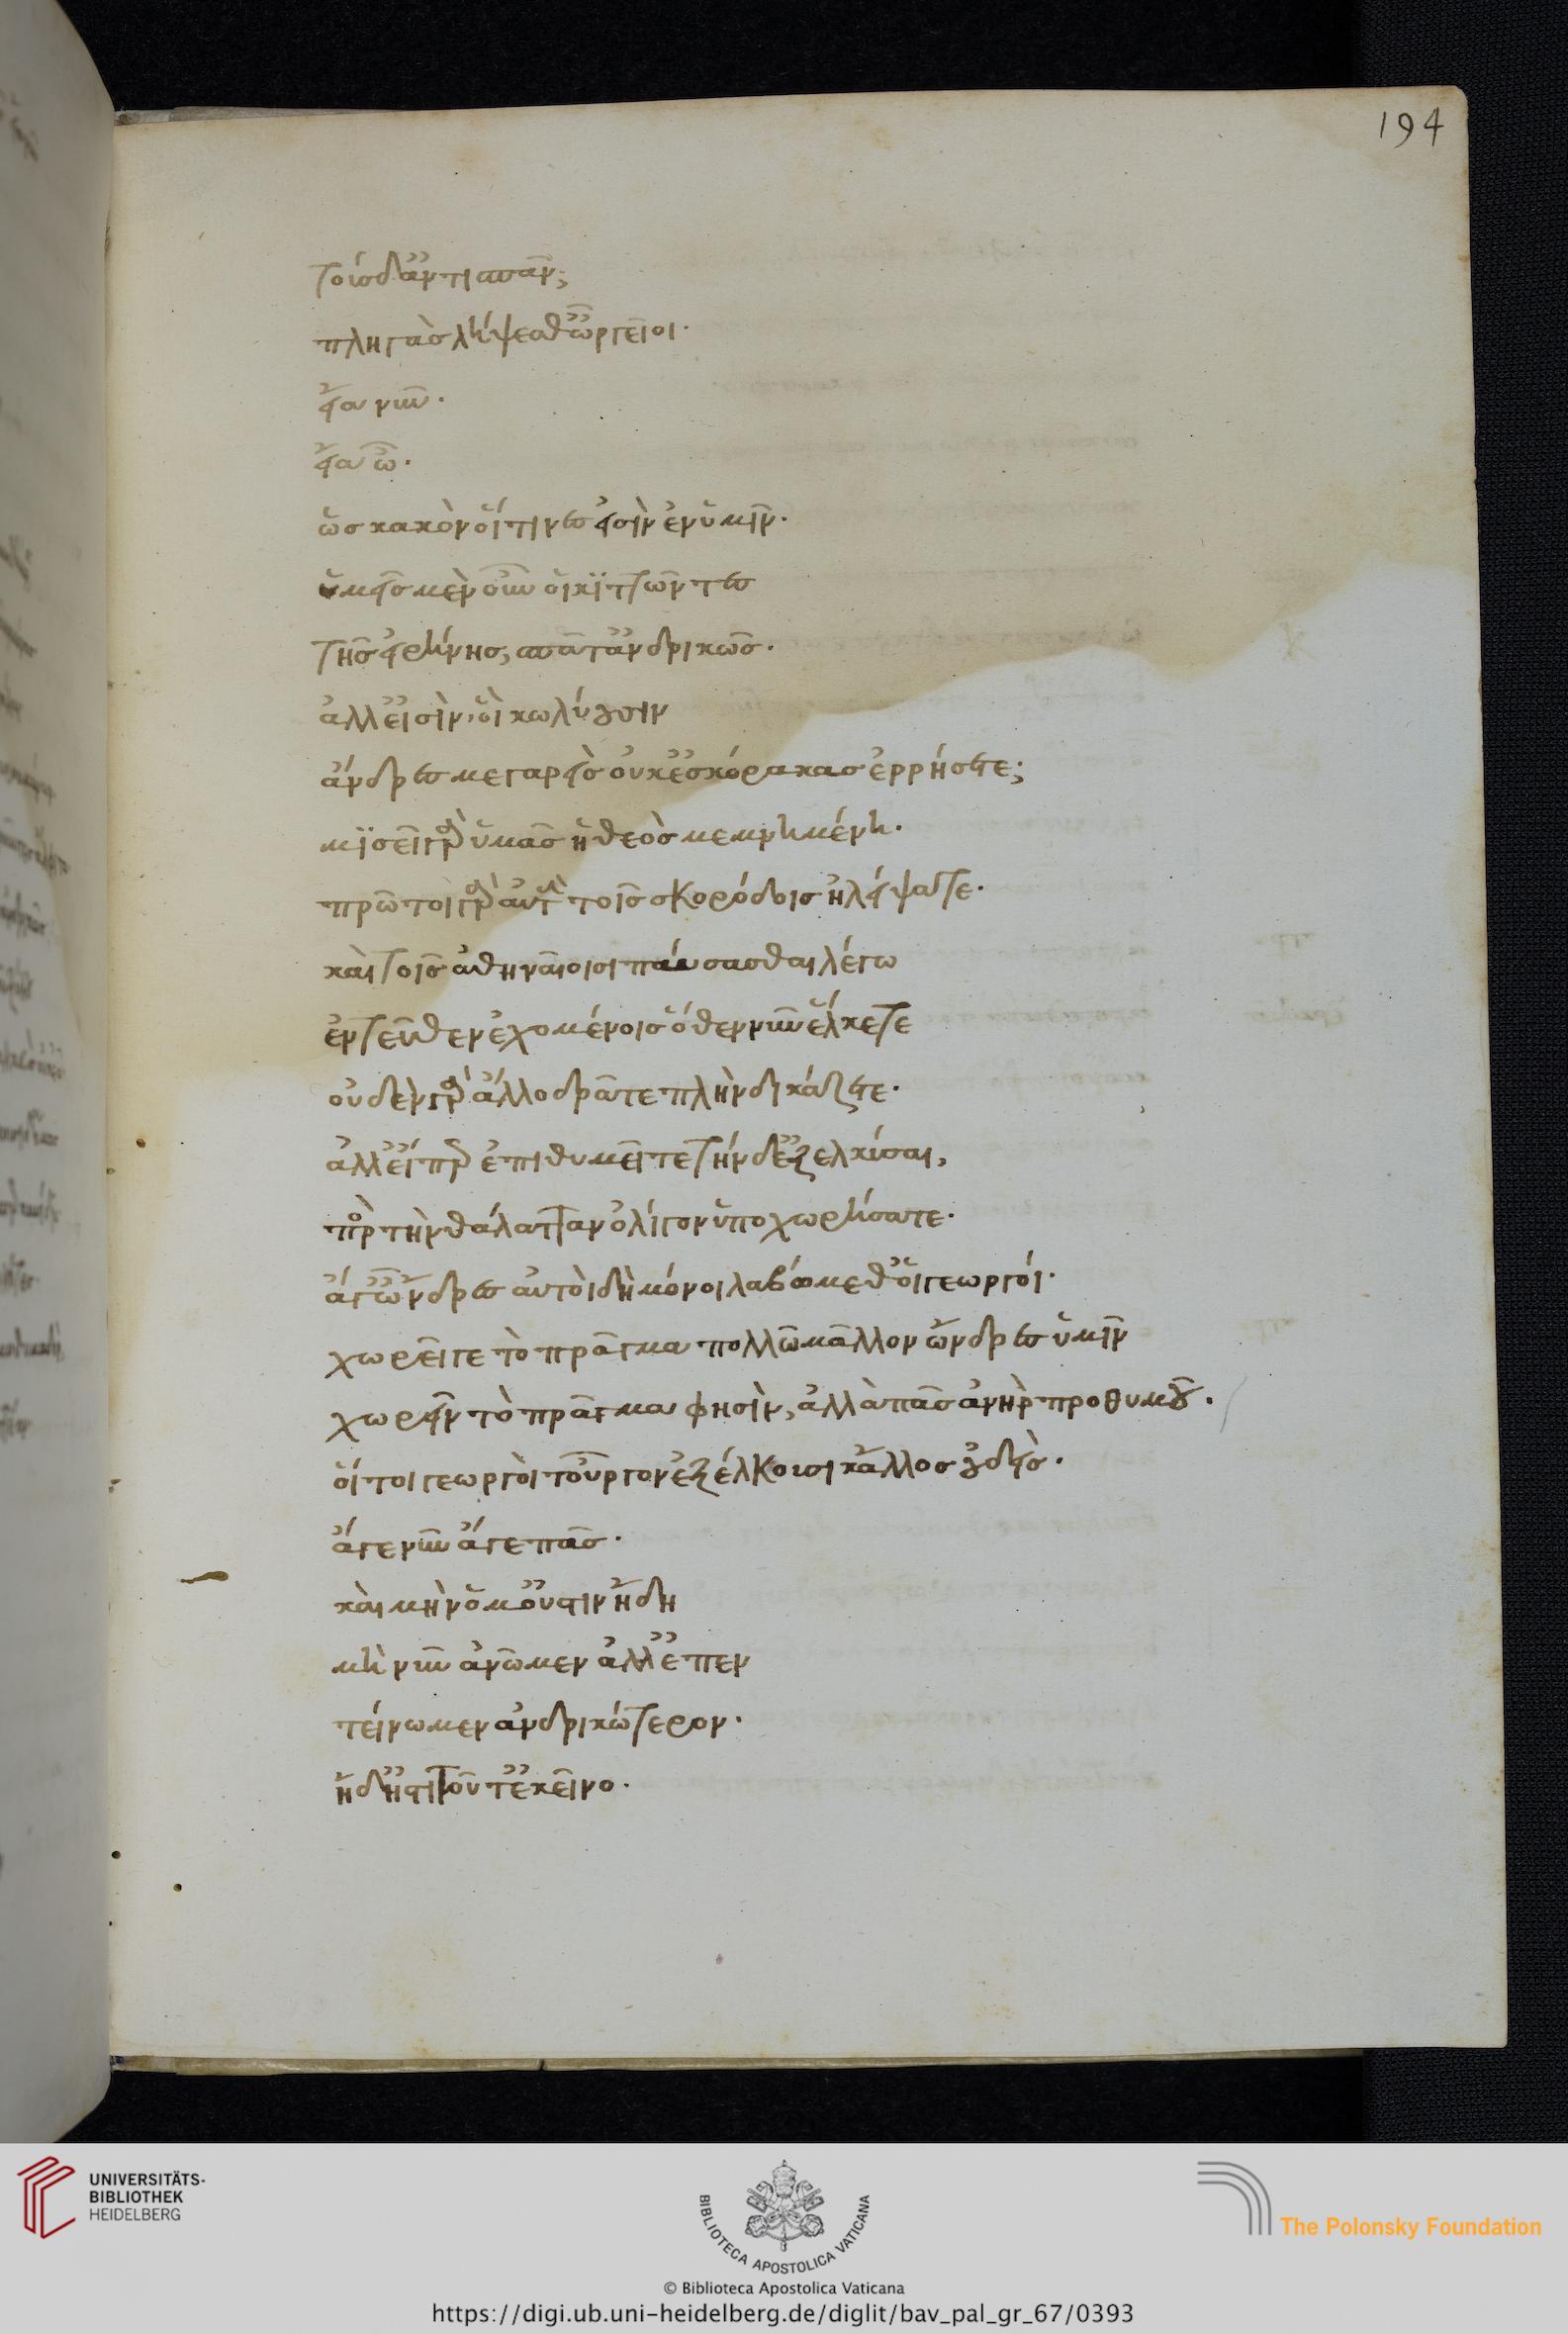 194
τοῖσδ' ἀντισπᾶν;
πληγὰς λήψεσθ' ὠργεῖοι.
εἶα νῦν.
εἶα ὦ.
ὡς κακόν οἵτινες εἰσὶν ἐν ὑμῖν.
ὑμεῖς μὲν οὖν οἱ κιττῶντες
τῆς εἰρήνης, σπᾶτ' ἀνδρικῶς.
ἀλλ' εἰσὶν, οἳ κωλύουσιν
ἄνδρες μεγαρεῖς οὐκ ἐς κόρακας ἐρρήσετε;
μισεῖ γὰρ ὑμᾶς ἡ θεὸς μεμνημένη.
πρῶτοι γὰρ αὐτὴν τοῖς σκορόδοις ἠλείψατε.
καὶ τοῖς ἀθηναίοισι παύσασθαι λέγω
ἐντεῦθεν ἐχομένοις ὅθεν νῦν ἕλκετε
οὐδὲν γὰρ ἄλλο δρᾶτε πλὴν δικάζετε.
ἀλλ' εἴπερ ἐπιθυμεῖτε τήνδ' ἐξελκύσαι,
πρὸς τὴν θάλατταν ὀλίγον ὑποχωρήσατε.
ἄγ' ὦνδρες αὐτοὶ δὴ μόνοι λαβώμεθ' οἱ γεωργοί.
χωρεῖ γε τὸ πρᾶγμα πολλῶ μᾶλλον ὦνδρες ὑμῖν
χωρεῖν τὸ πρᾶγμα φησὶν, ἀλλὰ πᾶς ἀνὴρ προθυμοῦ.
οἵ τοι γεωργοὶ τοὖργον ἐξέλκουσι κἄλλος οὐδείς.
ἄγε νῦν ἄγε πᾶς.
καὶ μὴν ὁμοῦ 'στιν ἤδη
μὴ νῦν ἀνῶμεν ἀλλ' ἐπεν
τείνωμεν ἀνδρικώτερον.
ἤδη 'στὶ τοῦτ' ἐκεῖνο.
UNIVERSITÄTS-
BIBLIOTHEK
HEIDELBERG
BIBLIOTECA APOSTOLICA VATICANA
The Polonsky Foundation
© Biblioteca Apostolica Vaticana
https://digi.ub.uni-heidelberg.de/diglit/bav_pal_gr_67/0393